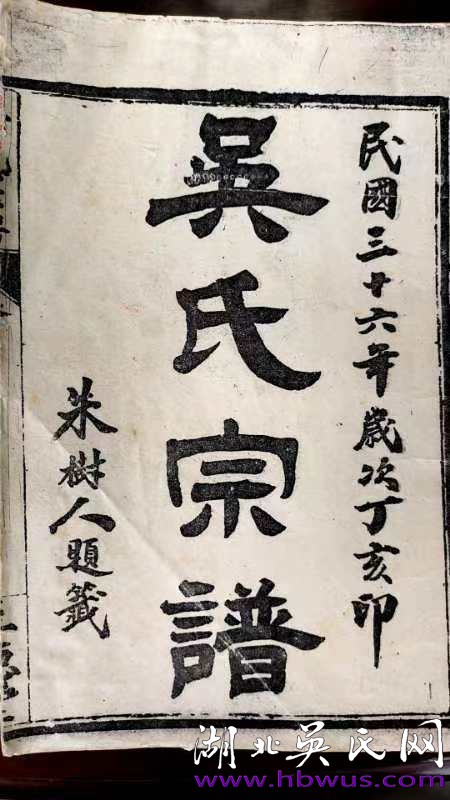 民國三十六年歲次丁亥印
吳氏宗譜
朱樹人題籤
湖北吴氏网
www.hbwus.com